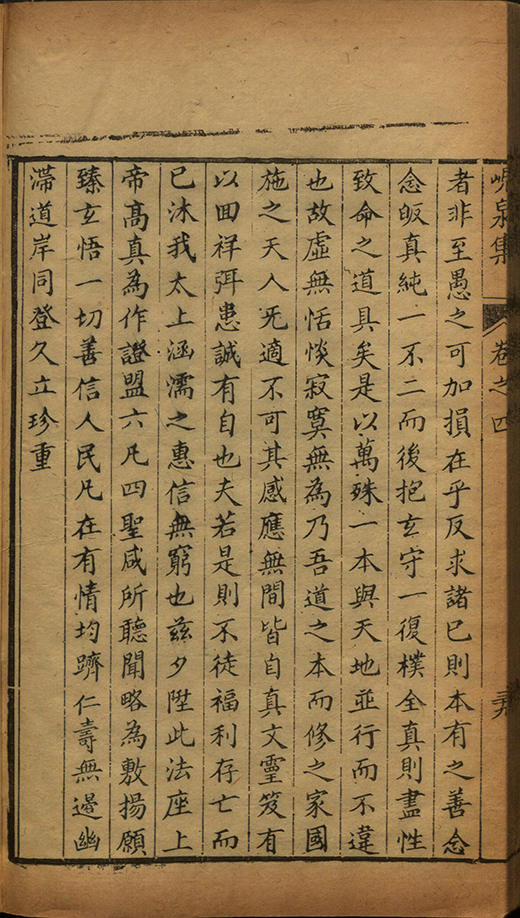 峴泉集 卷之四
者非至愚之可加損在乎反求諸已則本有之善念
念皈真純一不二而後抱玄守一復樸全真則盡性
致命之道具矣是以萬殊一本與天地並行而不違
也故虛無恬惔寂寞無為乃吾道之本而修之家國
施之天人旡適不可其感應無間皆自真文靈笈有
以回祥弭患誠有自也夫若是則不徒福利存亡而
已沐我太上涵濡之惠信無窮也茲夕陞此法座上
帝高真為作證盟六凡四聖咸所聽聞略為敷揚願
臻玄悟一切善信人民凡在有情均躋仁壽無邊幽
滯道岸同登久立珍重